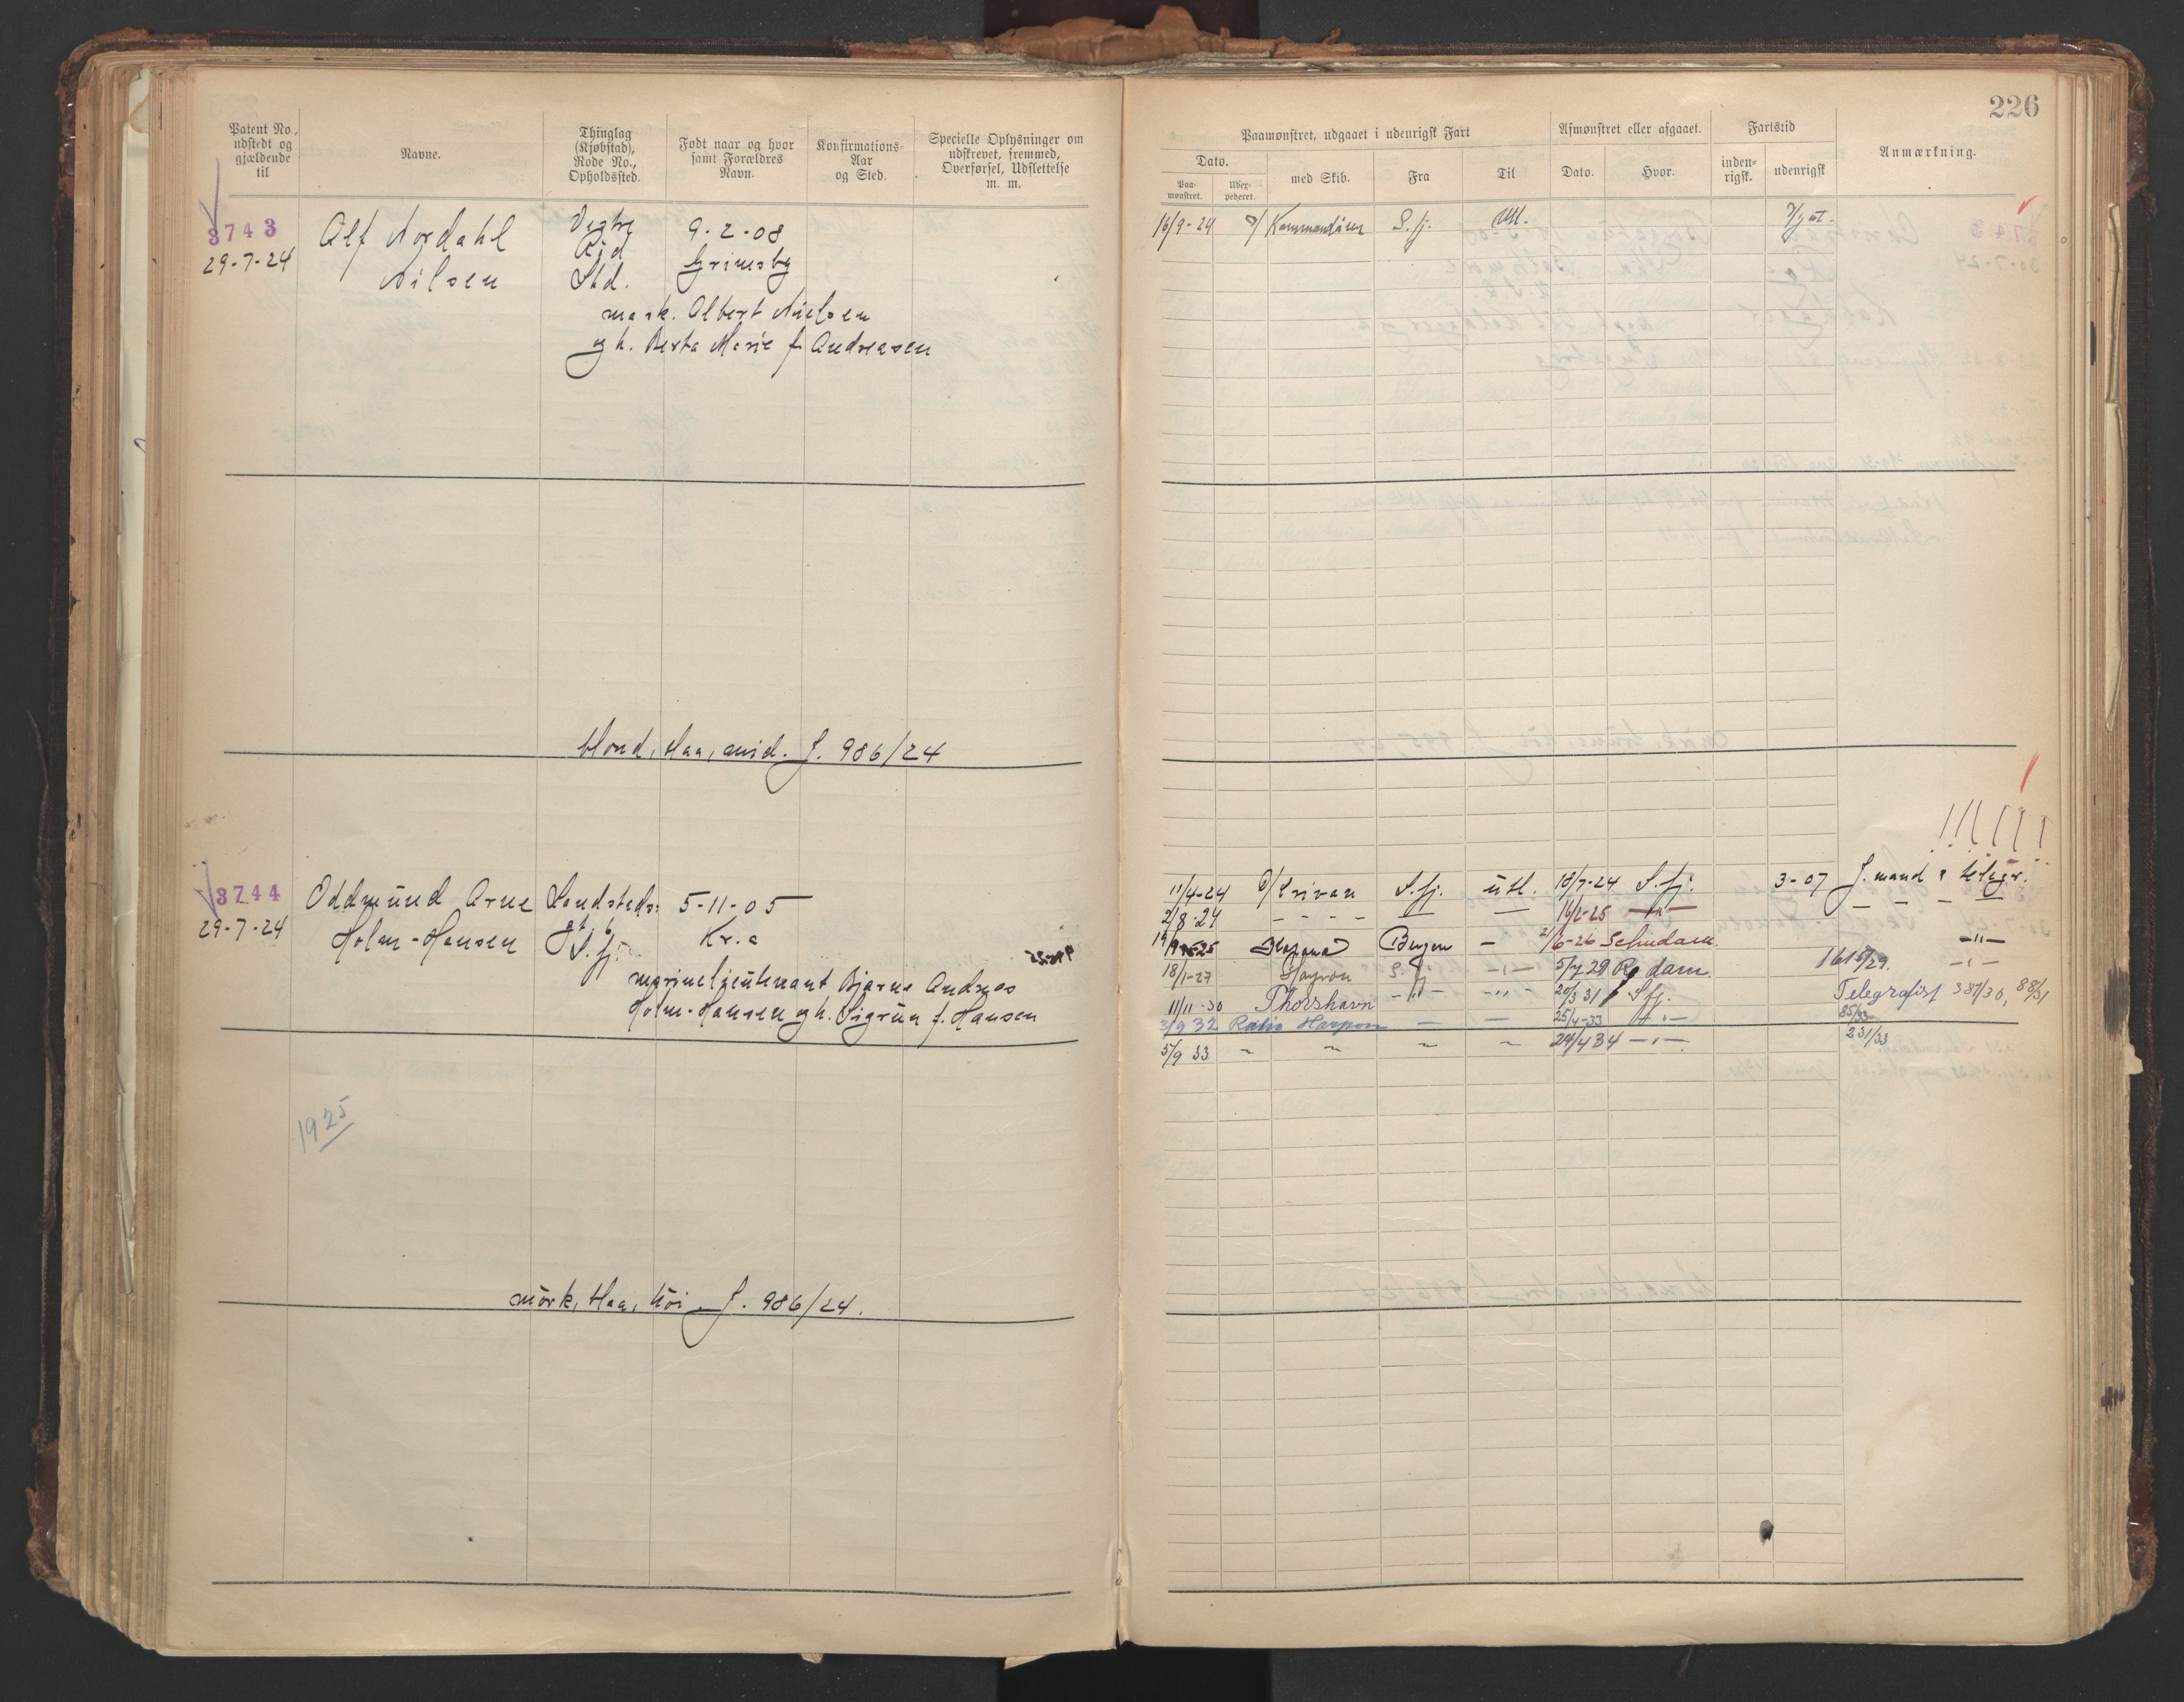 226
Patent No., udstedt og gjældende til
Navne.
Thinglag (Kjøbstad), Rode No., Opholdssted.
Født naar og hvor samt Forældres Navn.
Konfirmations-Aar og Sted.
Specielle Oplysninger om udskrevet, fremmed, Overførsel, Udslettelse m. m.
Paamønstret, udgaaet i udenrigsk Fart
Afmønstret eller afgaaet.
Fartstid
Anmærkning.
Dato.
Paa-mønstret.
Uder-pederet.
med Skib.
Fra
Til
Dato.
Hvor.
inden-rigsk.
udenrigsk
3743
29-7-24
Alf Nordahl
Nilsen
Vestre
Std.
9-2-08
Grimsby
mask. Albert Nielsen
og h. Berta Marie f. Andreasen
16/9-24 Kommandören S.fj. Utl.
blond, blaa, mid. J. 986/24
3744
29-7-24
Oddmund Arne
Holm-Hansen
Landsteds
gt. 6
S.fj.
5-11-05
Kr.a
marineljeutenant Bjarne Andreas
Holm-Hansen og h. Sigrun f. Hansen
1925
mörk, blaa, höi J. 986/24.
11/4-24 S.fj. utl. 18/7-24 S.fj. 3-07 J. mand & telegr.
2/8-24 - - - - — — 16/2-25 —"— — — — —
Bergen — 2/6-26 Schiedam. —"—
18/1-27 S.fj. —"— 5/7 29 R.dam. 161/29. —"—
11/11-30 Thorshavn —"— —"— 20/3 31 S.fj. Telegrafist 387/30, 88/31
3/9 32 Ratio Harpon — — 25/4-33 —"— 85/33
5/9 33 " " " " 24/4 34 —"— 231/33